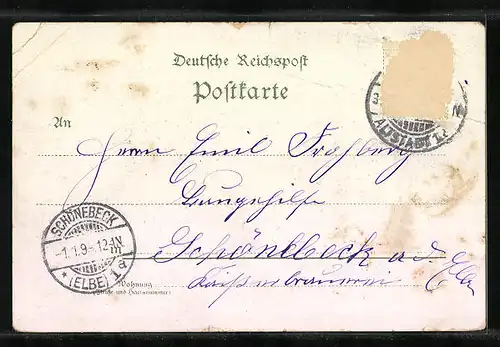 Deutsche Reichspost
Postkarte
An
Herrn Emil Frohberg
Schönebeck a. d. Elbe
Kaiserbrauerei
Wohnung
(Straße und Hausnummer)
SCHÖNEBECK
-1.1.9-.12-1N
* (ELBE)
ALTSTADT 1.